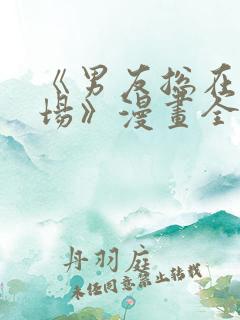 《男友總在
場》漫畫全
丹羽庭
未经同意禁止转载